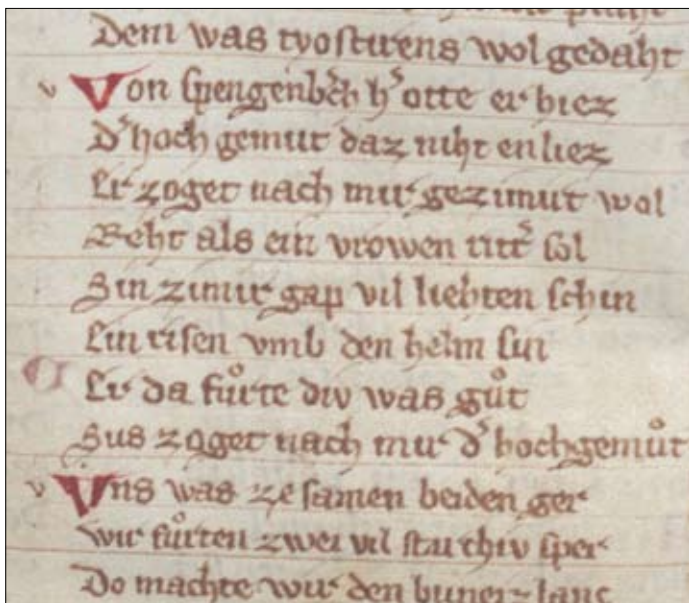 Dem was tyostirens wol gedaht
Von spengenbͤch hˀ otte er hiez
Dˀ hoch gemut daz niht enliez
Er zoget nach mir gezimirt wol
Reht als ein vrowen rittˀ sol
Sin zimir gap vil liehten schin
Ein risen vmb den helm sin
Er da fuͦrte div was guͦt
Sus zoget nach mir dˀ hochgemuͦt
Uns was ze samen beiden ger
wir fuͦrten zwei vil starchiv sper
Do machte wir den buner lanc